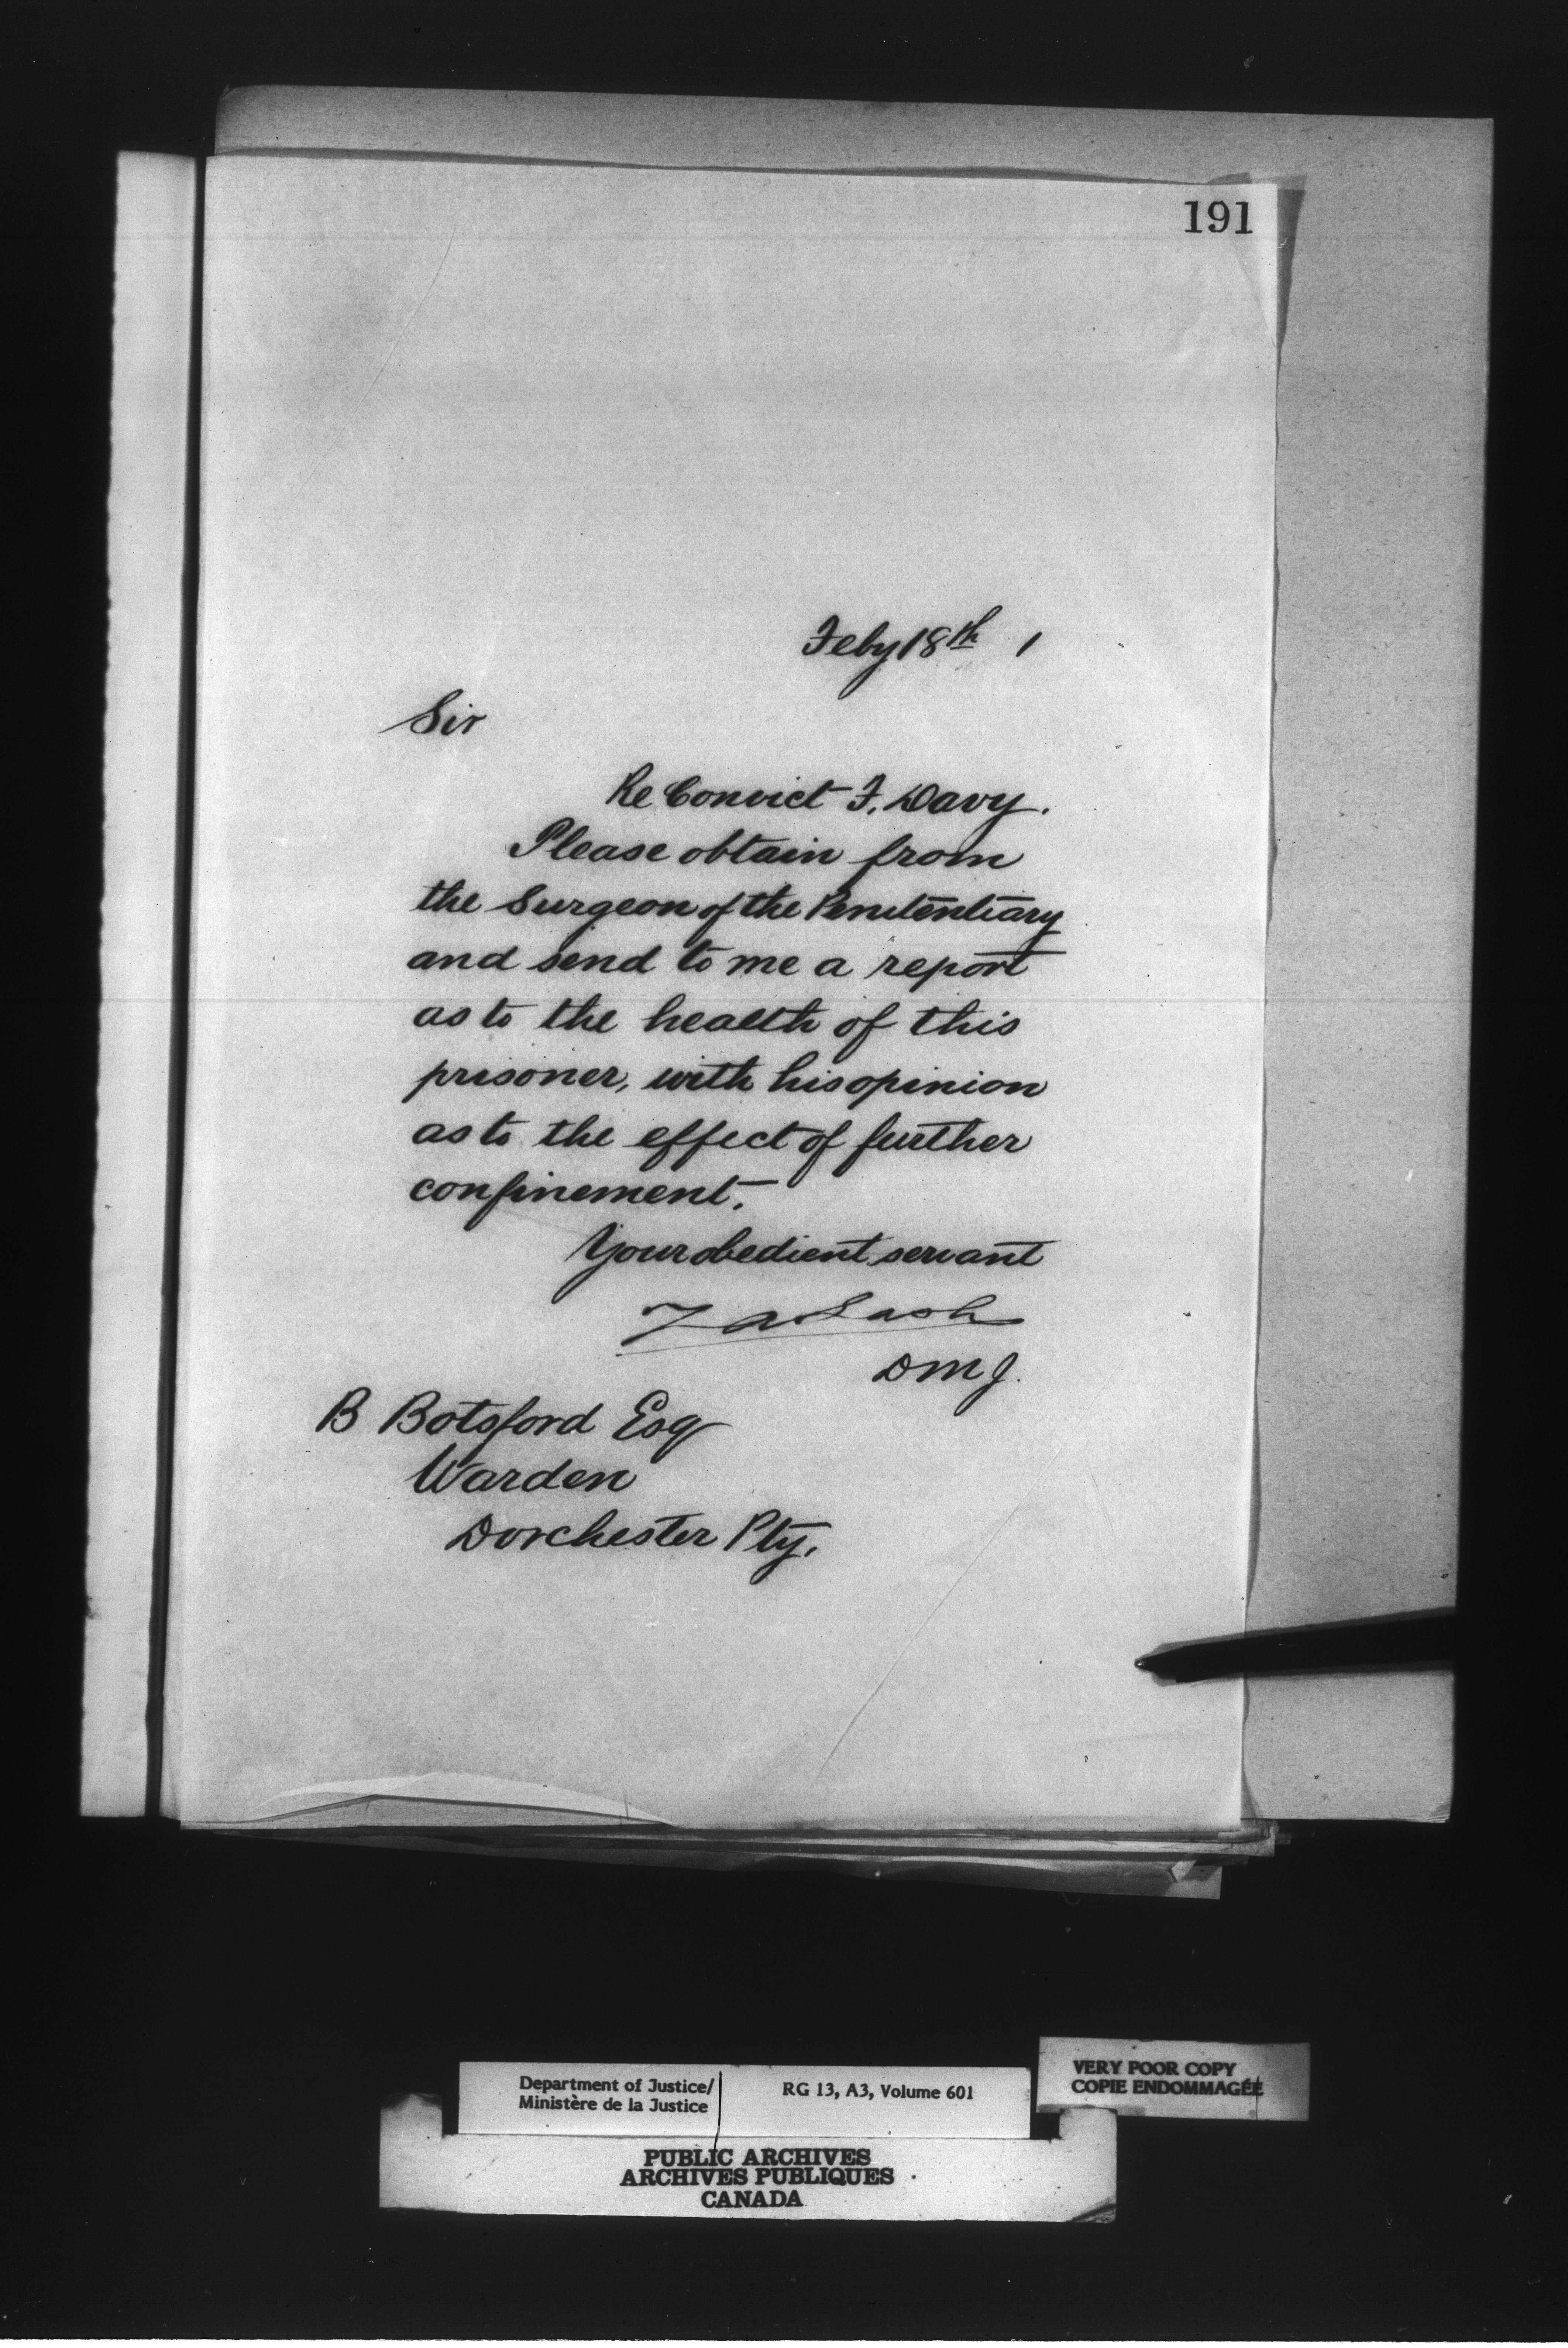 191
Feby 18th 1
Sir
Re Convict F. Davy.
Please obtain from
the Surgeon of the Penitentiary
and send to me a report
as to the health of this
prisoner, with his opinion
as to the effect of further
confinement.
Your obedient servant
Z A Lash
DMJ.
B Botsford Esq
Warden
Dorchester Pty.
VERY POOR COPY
COPIE ENDOMMAGÉE
Department of Justice/
Ministère de la Justice
RG 13, A3, Volume 601
PUBLIC ARCHIVES
ARCHIVES PUBLIQUES
CANADA